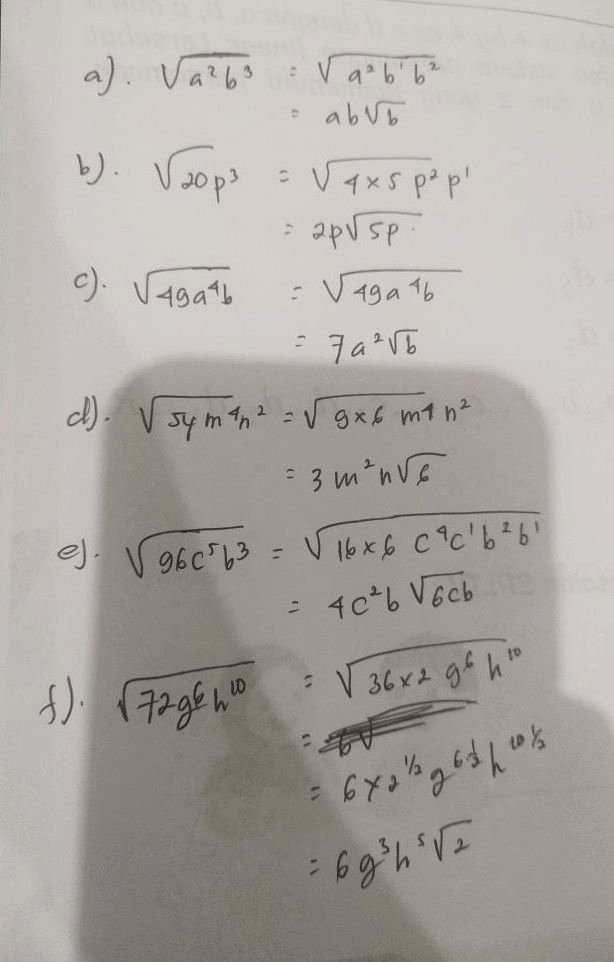 a). √a²b³ = √a²b¹b²
= ab√b
b). √20p³ = √4×5 p²p¹
= 2p√5p.
c). √49a⁴b = √49a⁴b
= 7a²√b
d). √54m⁴n² = √9×6 m⁴n²
= 3m²n√6
e). √96c⁵b³ = √16×6 c⁴c¹b²b¹
= 4c²b√6cb
f). √72g⁶h¹⁰ = √36×2 g⁶h¹⁰
=
= 6×2^½ g^6·½ h^10 ½
= 6g³h⁵√2